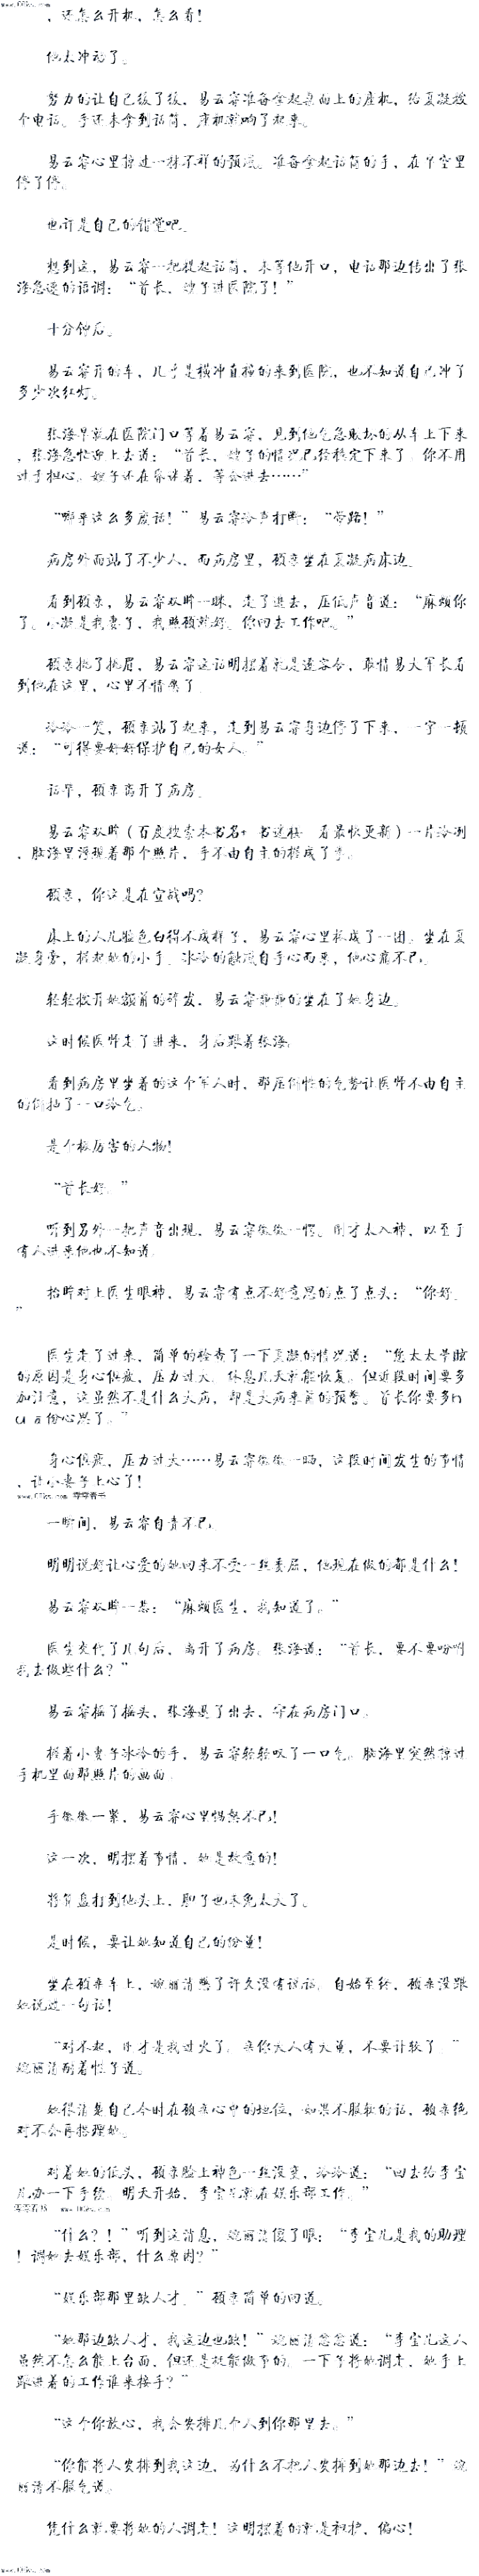 www.00ks.com
，还怎么开机，怎么看！
他太冲动了。
努力的让自己缓了缓，易云睿准备拿起桌面上的座机，给夏凝拨
个电话。手还未拿到话筒，座机就响了起来。
易云睿心里掠过一抹不祥的预感。准备拿起话筒的手，在半空里
停了停。
也许是自己的错觉吧。
想到这，易云睿一把提起话筒，未等他开口，电话那边传出了张
海急速的语调：“首长，嫂子进医院了！”
十分钟后。
易云睿开的车，几乎是横冲直撞的来到医院，也不知道自己冲了
多少次红灯。
张海早就在医院门口等着易云睿，见到他气急败坏的从车上下来
，张海急忙迎上去道：“首长，嫂子的情况已经稳定下来了，你不用
过于担心。嫂子还在昏迷着，等会进去……”
“哪来这么多废话！”易云睿冷声打断：“带路！”
病房外面站了不少人，而病房里，顾亲坐在夏凝病床边。
看到顾亲，易云睿双眸一眯，走了进去，压低声音道：“麻烦你
了。小凝是我妻子，我照顾就好。你回去工作吧。”
顾亲挑了挑眉，易云睿这话明摆着就是逐客令，敢情易大军长看
到他在这里，心里不情乐了。
冷冷一笑，顾亲站了起来，走到易云睿身边停了下来，一字一顿
道：“可得要好好保护自己的女人。”
话毕，顾亲离开了病房。
易云睿双眸（百度搜索本书名+ 书迷楼 看最快更新）一片冷冽
，脑海里浮现着那个照片，手不由自主的握成了拳。
顾亲，你这是在宣战吗？
床上的人儿脸色白得不成样子，易云睿心里揪成了一团。坐在夏
凝身旁，握起她的小手。冰冷的触感自手心而来，他心痛不已。
轻轻拨开她额前的碎发，易云睿静静的坐在了她身边。
这时候医师走了进来，身后跟着张海。
看到病房里坐着的这个军人时，那压倒性的气势让医师不由自主
的倒抽了一口冷气。
是个极厉害的人物！
“首长好。”
听到另外一把声音出现，易云睿微微一愕。刚才太入神，以至于
有人进来他也不知道。
抬眸对上医生眼神，易云睿有点不好意思的点了点头：“你好。
”
医生走了过来，简单的检查了一下夏凝的情况道：“您太太晕眩
的原因是身心俱疲，压力过大。休息几天就能恢复。但近段时间要多
加注意，这虽然不是什么大病，却是大病来前的预警。首长你要多h
ua份心思了。”
身心俱疲，压力过大……易云睿微微一晒，这段时间发生的事情
，让小妻子上心了！
www.00ks.com 零零看书
一瞬间，易云睿自责不已。
明明说好让心爱的她回来不受一丝委屈，他现在做的都是什么！
易云睿双眸一忽：“麻烦医生，我知道了。”
医生交代了几句后，离开了病房。张海道：“首长，要不要吩咐
我去做些什么？”
易云睿摇了摇头，张海退了出去，守在病房门口。
握着小妻子冰冷的手，易云睿轻轻叹了一口气。脑海里突然掠过
手机里面那照片的画面。
手微微一紧，易云睿心里恼怒不已！
这一次，明摆着事情，她是故意的！
将算盘打到他头上，胆子也未免太大了。
是时候，要让她知道自己的份量！
坐在顾亲车上，婉丽清憋了许久没有说话。自始至终，顾亲没跟
她说过一句话！
“对不起，刚才是我过火了。亲你大人有大量，不要计较了。”
婉丽清耐着性子道。
她很清楚自己今时在顾亲心中的地位，如果不服软的话，顾亲绝
对不会再搭理她。
对着她的低头，顾亲脸上神色一丝没变，冷冷道：“回去给李宝
儿办一下手续。明天开始，李宝儿就在娱乐部工作。”
零零看书 www.00ks.com
“什么？！”听到这消息，婉丽清傻了眼：“李宝儿是我的助理
！调她去娱乐部，什么原因？”
“娱乐部那里缺人才。”顾亲简单的回道。
“她那边缺人才，我这边也缺！”婉丽清忿忿道：“李宝儿这人
虽然不怎么能上台面，但还是挺能做事的。一下子将她调走，她手上
跟进着的工作谁来接手？”
“这个你放心，我会安排几个人到你那里去。”
“你能将人安排到我这边，为什么不把人安排到她那边去！”婉
丽清不服气道。
凭什么就要将她的人调走！这明摆着的就是袒护，偏心！
www.00ks.com